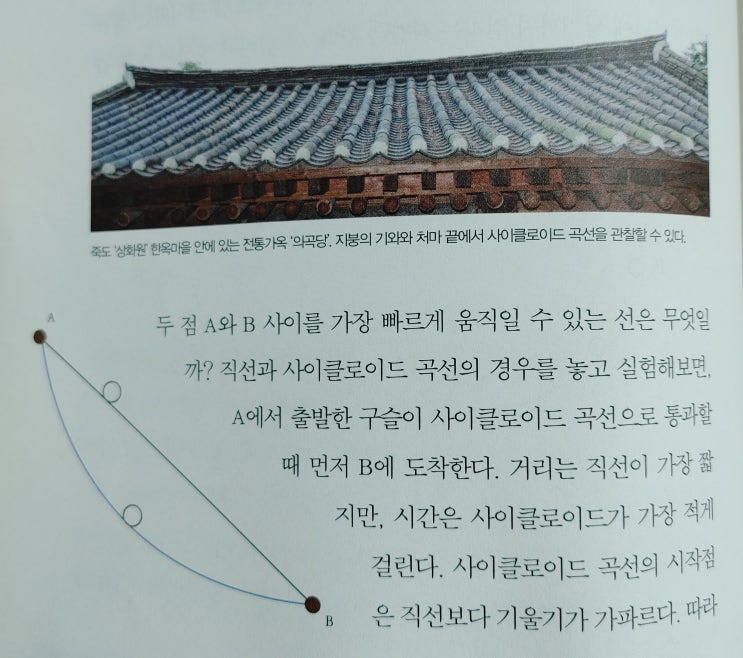 죽도 '상화원' 한옥마을 안에 있는 전통가옥 '의곡당'. 지붕의 기와와 처마 끝에서 사이클로이드 곡선을 관찰할 수 있다.
A
두 점 A와 B 사이를 가장 빠르게 움직일 수 있는 선은 무엇일
까? 직선과 사이클로이드 곡선의 경우를 놓고 실험해보면,
A에서 출발한 구슬이 사이클로이드 곡선으로 통과할
때 먼저 B에 도착한다. 거리는 직선이 가장 짧
지만, 시간은 사이클로이드가 가장 적게
걸린다. 사이클로이드 곡선의 시작점
은 직선보다 기울기가 가파르다. 따라
B